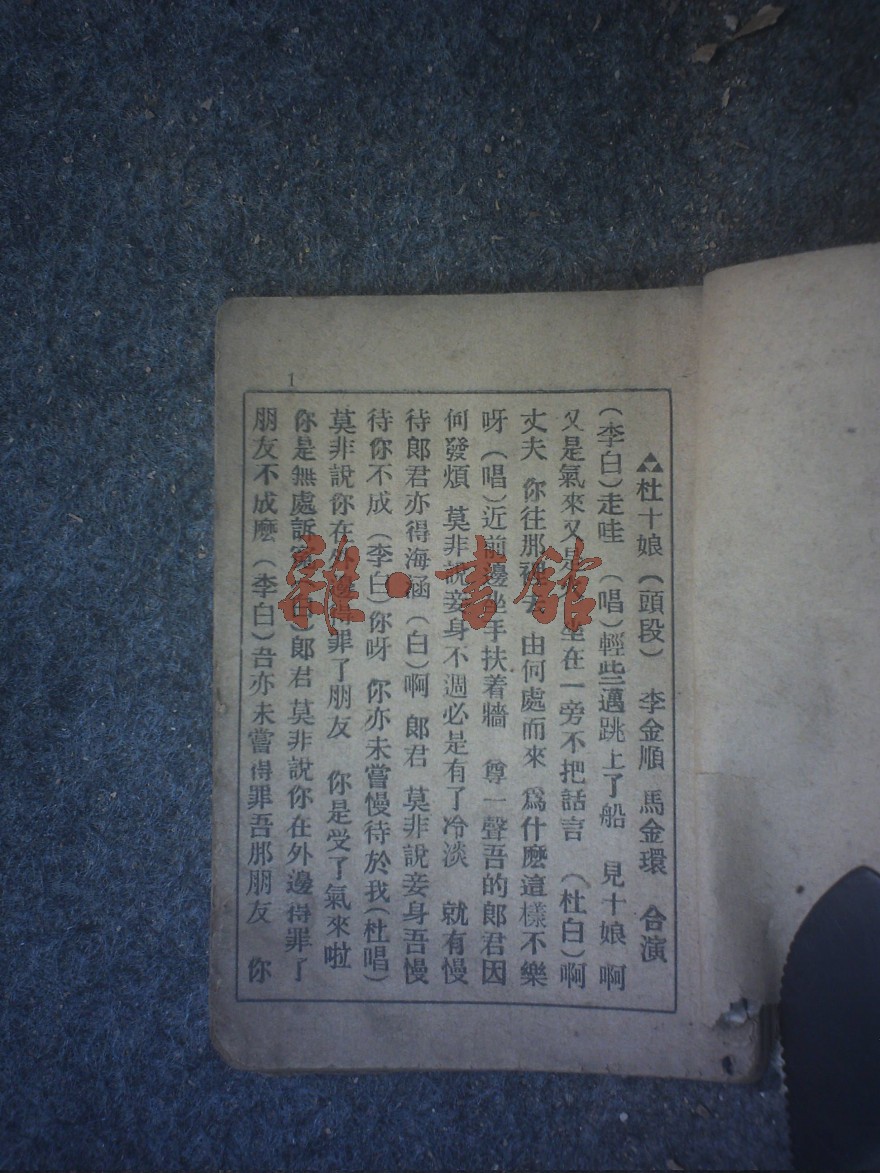 杜十娘 (頭段) 李金順 馬金環 合演
(李白)走哇 (唱)輕些邁跳上了船 見十娘 啊
又是氣來又是 坐在一旁不把話言 (杜白)啊
丈夫 你往那裡去 由何處而來 爲什麽這樣不樂
呀 (唱)近前邊坐手扶着牆 尊一聲吾的郎君因
何發煩 莫非說妾身不週必是有了冷淡 就有慢
待郎君亦得海涵 (白)啊 郎君 莫非說妾身吾慢
待你不成 (李白)你呀 你亦未嘗慢待於我(杜唱)
莫非說你在外邊得罪了朋友 你是受了氣來啦
你是無處訴冤 (白)郎君 莫非說你在外邊得罪了
朋友不成麽 (李白)吾亦未嘗得罪吾那朋友 你
1
雜·書館